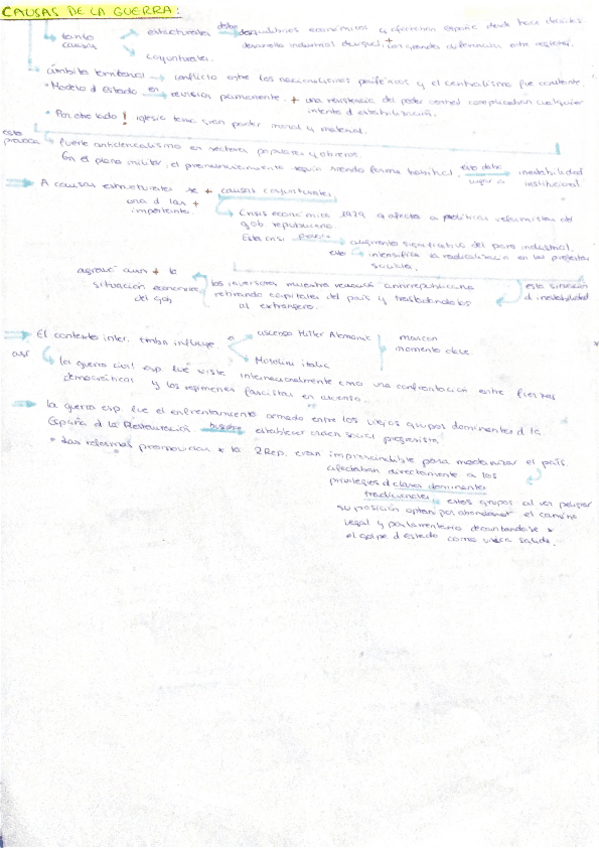 CAUSAS DE LA GUERRA:
tanto causas
estructurales debe desequilibrios económicos q afectaban España desde hace décadas
desarrollo industrial desigual + las grandes diferencias entre regiones.
coyunturales.
ámbito territorial conflicto entre los nacionalismos periféricos y el centralismo fue constante.
• Modelo d Estado en revisión permanente. + una resistencia del poder central complicaban cualquier
intento d estabilización.
• Por otro lado ! iglesia tenía gran poder moral y material.
esto provoca fuerte anticlericalismo en sectores populares y obreros.
En el plano militar, el pronunciamiento seguía siendo forma habitual. inestabilidad
institucional
A causas estructurales se + causas coyunturales.
una d las +
importante.
Crisis económica 1929 q afecta a políticas reformistas del
gob republicano
Esta crisi aumento significativo del paro industrial.
esto intensifica la radicalización en las protestas
sociales.
agravó aun + la
situación económica
del gob
los inversores muestran rechazo antirrepublicano
retirando capitales del país y trasladándolos
al extranjero.
esta situación
d inestabilidad
El contexto inter. tmbn influye.
ascenso Hitler Alemania
Mussolini italia
marcan
momento clave.
así la guerra civil esp. fué vista internacionalmente como una confrontación entre fuerzas
democráticas y los regímenes fascistas en ascenso.
la guerra esp. fue el enfrentamiento armado entre los viejos grupos dominantes d la
España d la Restauración. establecer orden social progresista
• Las reformas promovidas x la 2Rep. eran imprescindible para modernizar el país.
afectaban directamente a los
privilegios d clases dominantes
tradicionales estos grupos al ver peligrar
su posición optan por abandonar el camino
legal y parlamentario decantándose x
el golpe d estado como única salida.